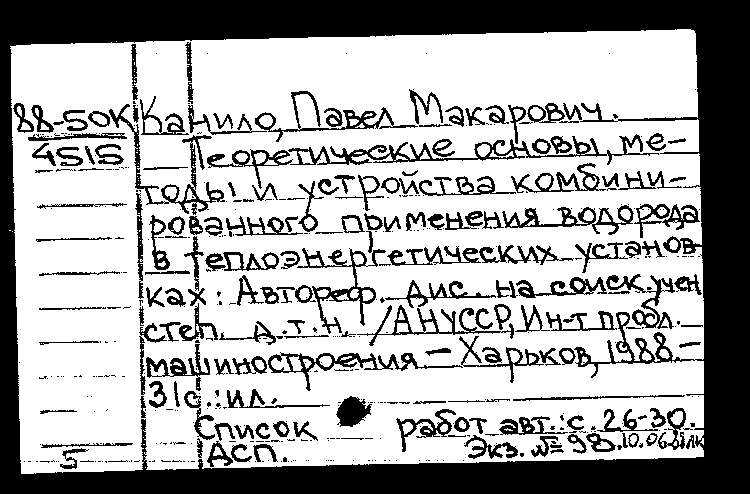 88-50К Канило, Павел Макарович.
4515 Теоретические основы, ме-
тоды и устройства комбини-
рованного применения водорода
в теплоэнергетических установ-
ках: Автореф. дис. на соиск. учен
степ. д.т.н. /АНУССР, Ин-т пробл.
машиностроения - Харьков, 1988.-
31с.:ил.
Список работ авт.: с. 26-30.
5 ДСП. Экз. №98.